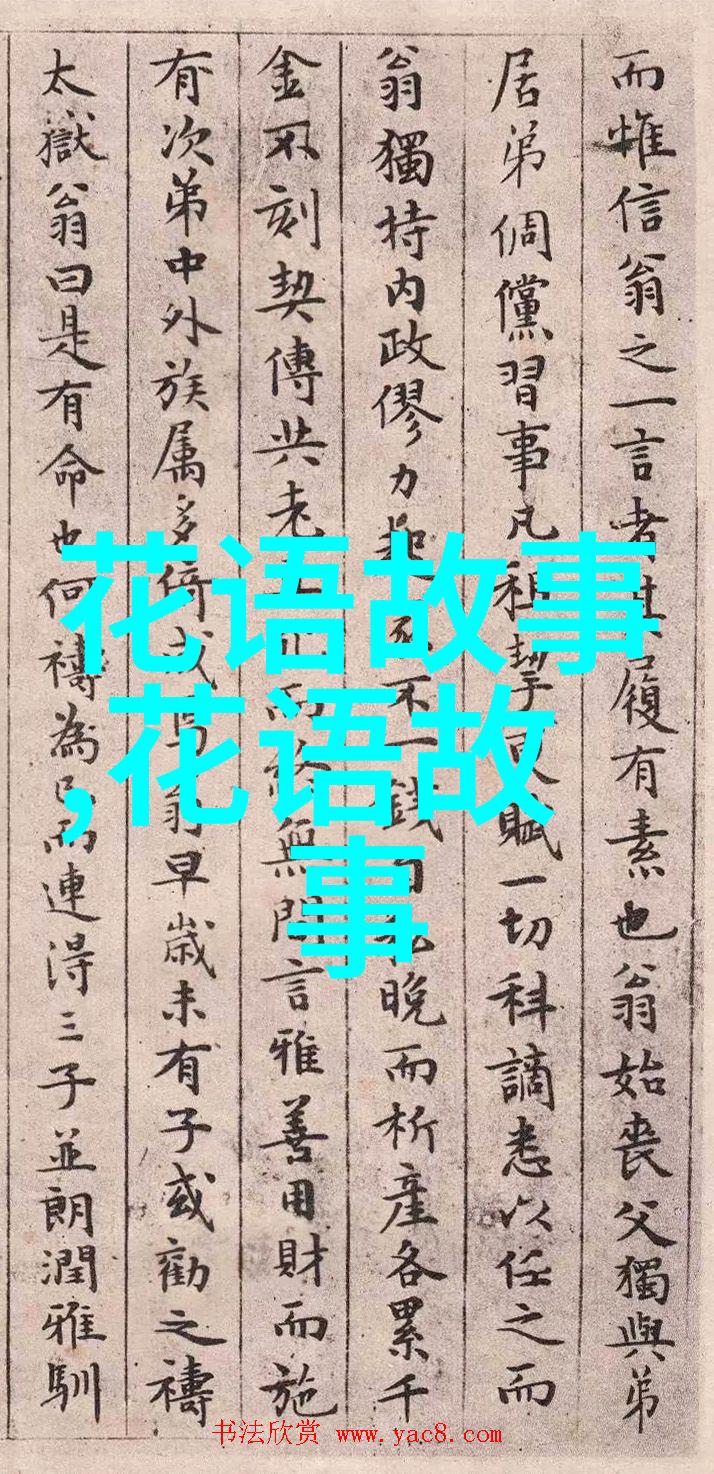 而惟信翁之一言者其履有素也翁始喪父獨與弟
居弟倜儻習事凡租挈賦一切科謫悉以任之而
翁獨持内政僇力不一錢晚而析產各累千
金不刻契傳共老而無間言雅善用財而施
有次弟中外族属多倚或翁早歲未有子或勸之禱
太嶽翁曰是有命也何禱為已而連得三子並朗潤雅馴
花语故事
,花语故
事
书法欣赏 www.yac8.com